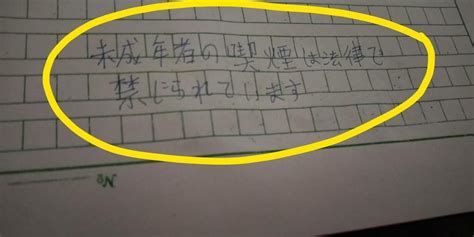 未成年者の喫煙は法律で
禁じられています
No